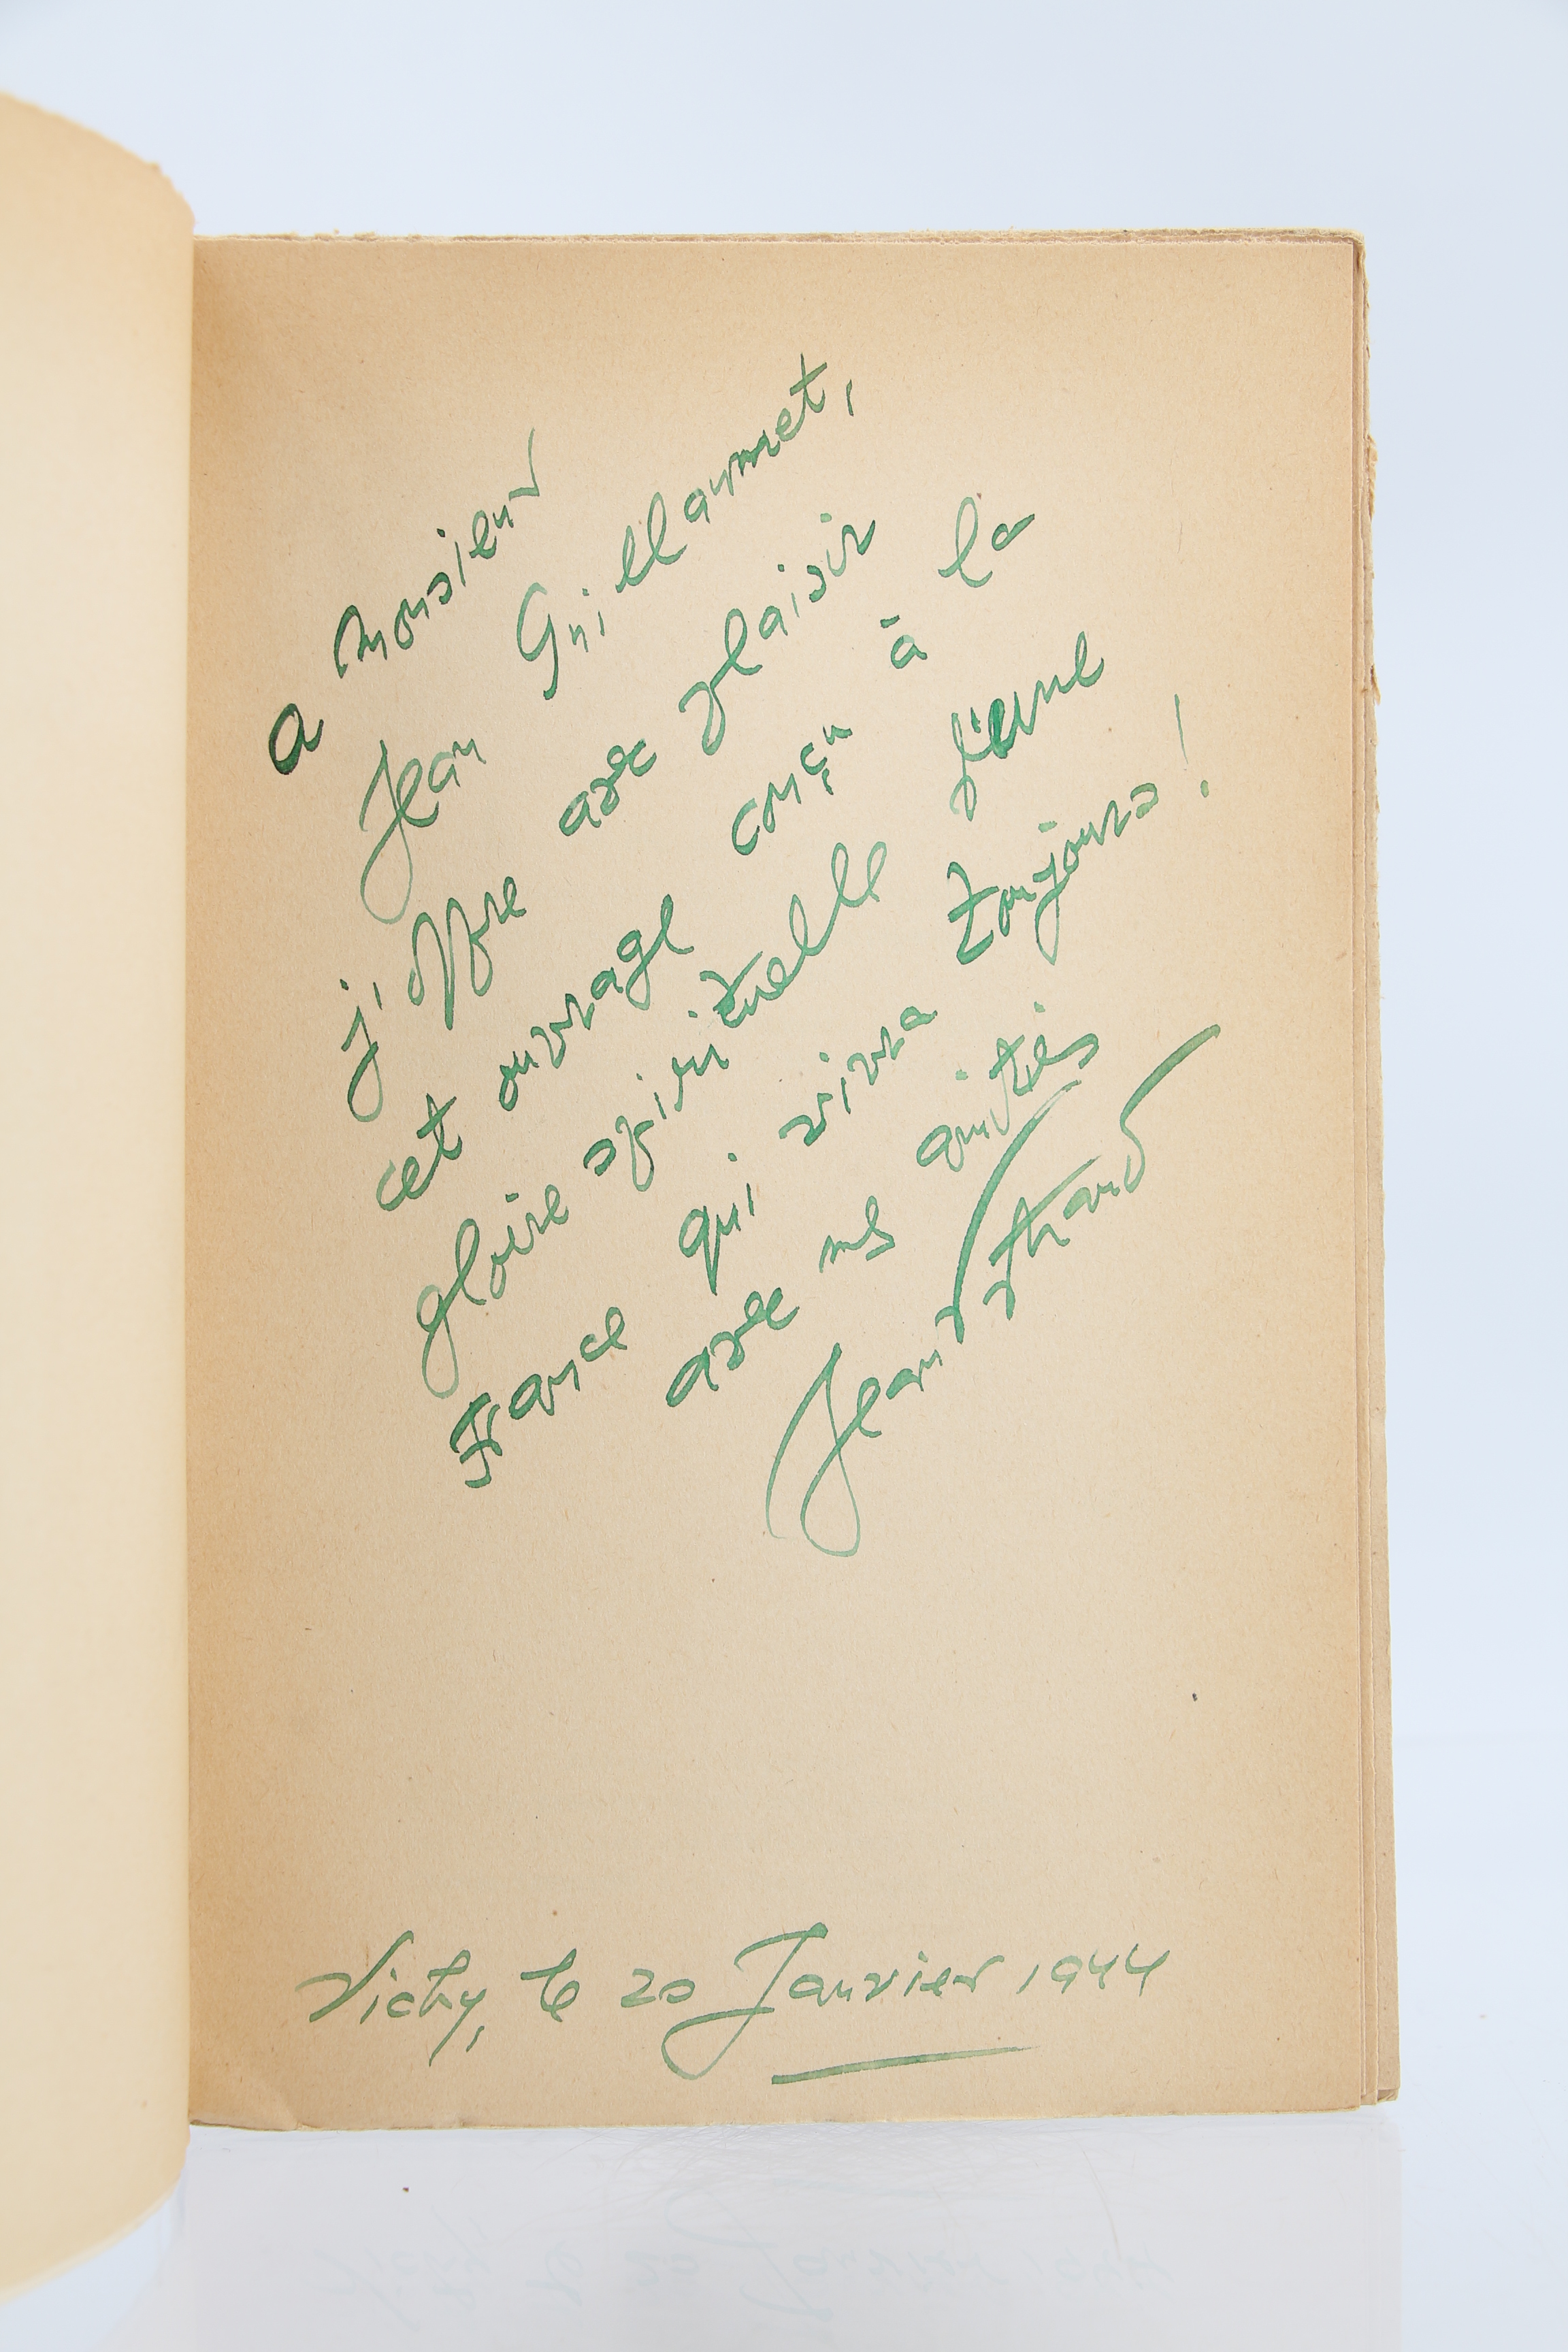 A Monsieur
Jean Guillaumet,
j'offre avec plaisir
cet ouvrage conçu à la
gloire spirituelle d'une
France qui vivra toujours !
avec mes amitiés
Jean
Vichy, le 20 Janvier 1944